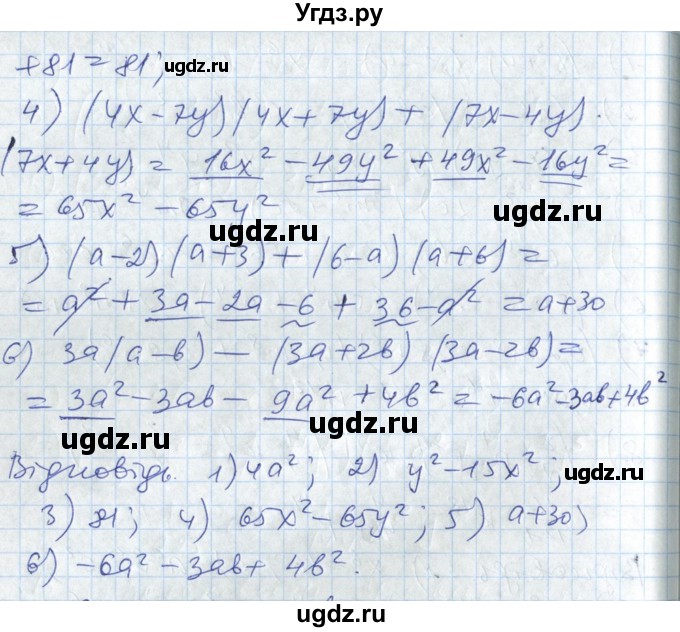 Угдз.ру
+81 = 81;
ugdz.ru
4) (4x-7y)(4x+7y)+(7x-4y)·
(7x+4y) = 16x² - 49y² + 49x² - 16y² =
= 65x² - 65y²
ugdz.ru ugdz.ru
5) (a-2)(a+3)+(6-a)(a+6) =
= a² + 3a - 2a - 6 + 36 - a² = a+30
6) 3a(a-b) - (3a+2b)(3a-2b) =
= 3a² - 3ab - 9a² + 4b² = -6a² - 3ab + 4b²
ugdz.ru ugdz.ru
Відповідь. 1) 4a²; 2) y² - 15x²;
ugdz.ru
3) 81; 4) 65x² - 65y²; 5) a+30;
ugdz.ru
6) -6a² - 3ab + 4b².
ugdz.ru ugdz.ru